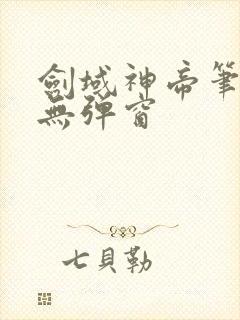 劍域神帝筆
無彈窗
七貝勒